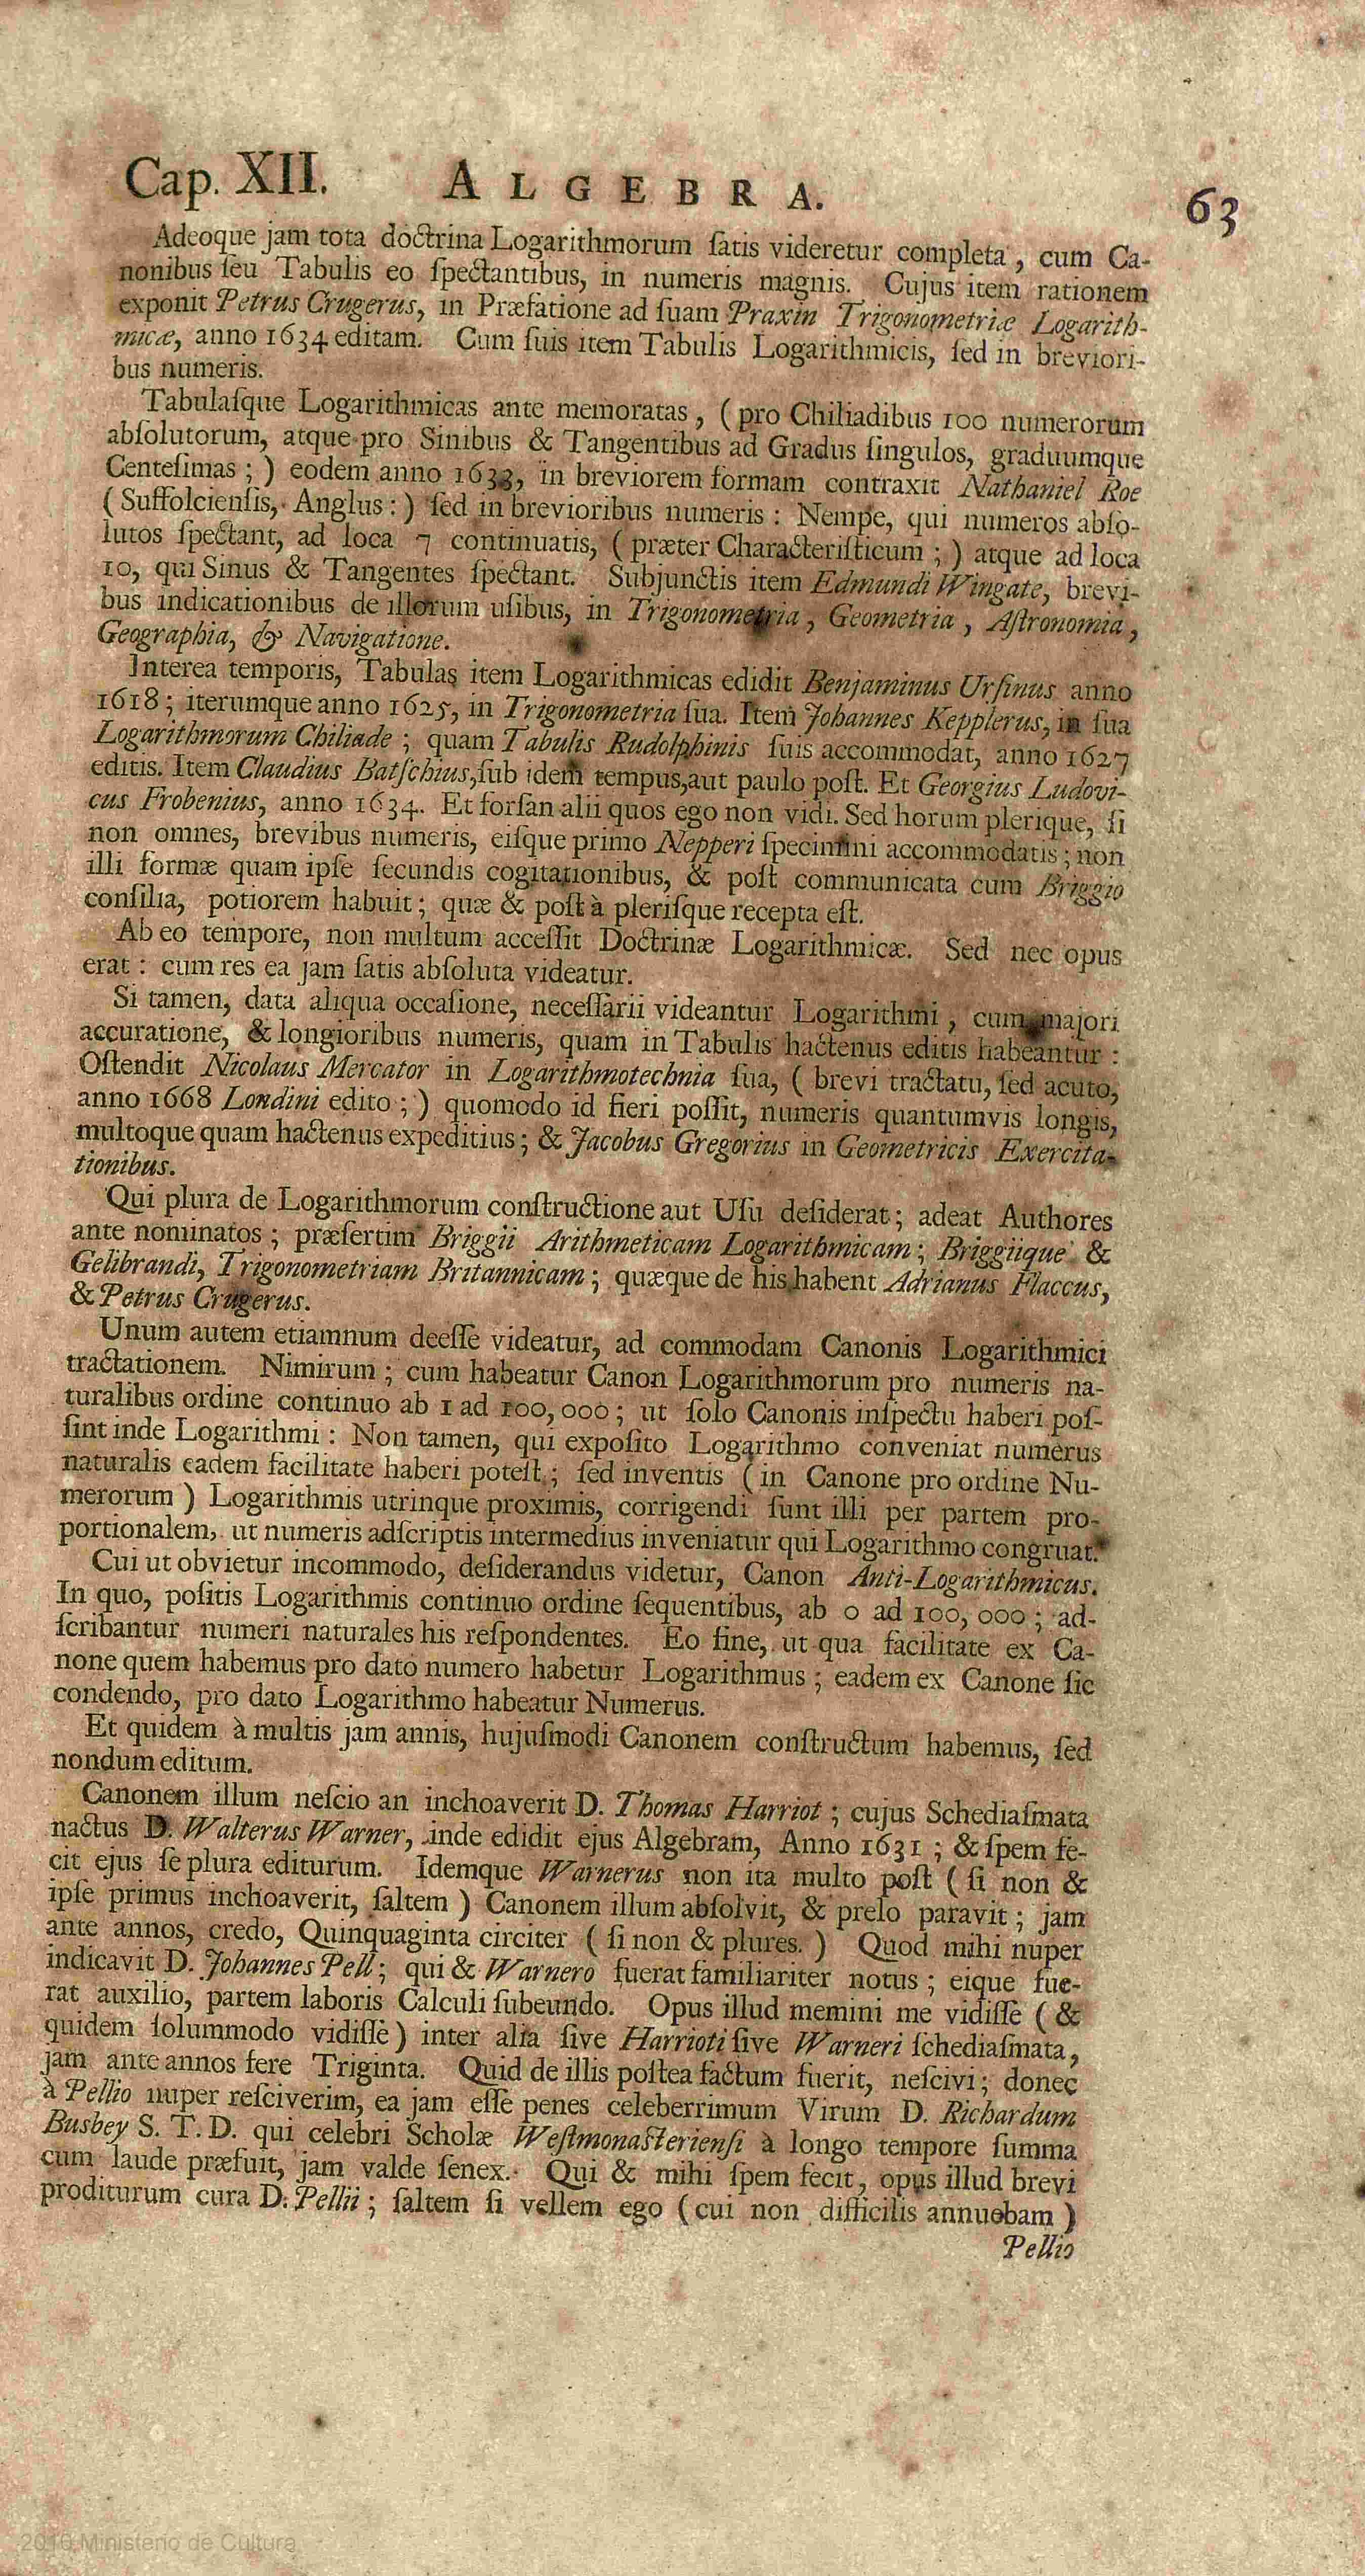 Cap. XII. ALGEBRA. 63
Adeoque jam tota doctrina Logarithmorum ſatis videretur completa, cum Ca-
nonibus ſeu Tabulis eo ſpectantibus, in numeris magnis. Cujus item rationem
exponit Petrus Crugerus, in Præfatione ad ſuam Praxin Trigonometriæ Logarith-
micæ, anno 1634 editam. Cum ſuis item Tabulis Logarithmicis, ſed in breviori-
bus numeris.
Tabulaſque Logarithmicas ante memoratas, (pro Chiliadibus 100 numerorum
abſolutorum, atque pro Sinibus & Tangentibus ad Gradus ſingulos, graduumque
Centeſimas;) eodem anno 1633, in breviorem formam contraxit Nathaniel Roe
(Suffolcienſis, Anglus:) ſed in brevioribus numeris: Nempe, qui numeros abſo-
lutos ſpectant, ad loca 7 continuatis, (præter Characteriſticum;) atque ad loca
10, qui Sinus & Tangentes ſpectant. Subjunctis item Edmundi Wingate, brevi-
bus indicationibus de illorum uſibus, in Trigonometria, Geometria, Aſtronomia,
Geographia, & Navigatione.
Interea temporis, Tabulas item Logarithmicas edidit Benjaminus Urſinus anno
1618; iterumque anno 1625, in Trigonometria ſua. Item Johannes Kepplerus, in ſua
Logarithmorum Chiliade; quam Tabulis Rudolphinis ſuis accommodat, anno 1627
editis. Item Claudius Batſchius, ſub idem tempus, aut paulo poſt. Et Georgius Ludovi-
cus Frobenius, anno 1634. Et forſan alii quos ego non vidi. Sed horum plerique, ſi
non omnes, brevibus numeris, eiſque primo Nepperi ſpecimini accommodatis; non
illi formæ quam ipſe ſecundis cogitationibus, & poſt communicata cum Briggio
conſilia, potiorem habuit; quæ & poſt à pleriſque recepta eſt.
Ab eo tempore, non multum acceſſit Doctrinæ Logarithmicæ. Sed nec opus
erat: cum res ea jam ſatis abſoluta videatur.
Si tamen, data aliqua occaſione, neceſſarii videantur Logarithmi, cum majori
accuratione, & longioribus numeris, quam in Tabulis hactenus editis habeantur:
Oſtendit Nicolaus Mercator in Logarithmotechnia ſua, (brevi tractatu, ſed acuto,
anno 1668 Londini edito;) quomodo id fieri poſſit, numeris quantumvis longis,
multoque quam hactenus expeditius; & Jacobus Gregorius in Geometricis Exercita-
tionibus.
Qui plura de Logarithmorum conſtructione aut Uſu deſiderat; adeat Authores
ante nominatos; præſertim Briggii Arithmeticam Logarithmicam; Briggiique &
Gelibrandi, Trigonometriam Britannicam; quæque de his habent Adrianus Flaccus,
& Petrus Crugerus.
Unum autem etiamnum deeſſe videatur, ad commodam Canonis Logarithmici
tractationem. Nimirum; cum habeatur Canon Logarithmorum pro numeris na-
turalibus ordine continuo ab 1 ad 100,000; ut ſolo Canonis inſpectu haberi poſ-
ſint inde Logarithmi: Non tamen, qui expoſito Logarithmo conveniat numerus
naturalis eadem facilitate haberi poteſt; ſed inventis (in Canone pro ordine Nu-
merorum) Logarithmis utrinque proximis, corrigendi ſunt illi per partem pro-
portionalem, ut numeris adſcriptis intermedius inveniatur qui Logarithmo congruat.
Cui ut obvietur incommodo, deſiderandus videtur, Canon Anti-Logarithmicus.
In quo, poſitis Logarithmis continuo ordine ſequentibus, ab 0 ad 100,000; ad-
ſcribantur numeri naturales his reſpondentes. Eo fine, ut qua facilitate ex Ca-
none quem habemus pro dato numero habetur Logarithmus; eadem ex Canone ſic
condendo, pro dato Logarithmo habeatur Numerus.
Et quidem à multis jam annis, hujuſmodi Canonem conſtructum habemus, ſed
nondum editum.
Canonem illum neſcio an inchoaverit D. Thomas Harriot; cujus Schediaſmata
nactus D. Walterus Warner, inde edidit ejus Algebram, Anno 1631; & ſpem fe-
cit ejus ſe plura editurum. Idemque Warnerus non ita multo poſt (ſi non &
ipſe primus inchoaverit, ſaltem) Canonem illum abſolvit, & prelo paravit; jam
ante annos, credo, Quinquaginta circiter (ſi non & plures.) Quod mihi nuper
indicavit D. Johannes Pell; qui & Warnero fuerat familiariter notus; eique fue-
rat auxilio, partem laboris Calculi ſubeundo. Opus illud memini me vidiſſe (&
quidem ſolummodo vidiſſe) inter alia ſive Harrioti ſive Warneri ſchediaſmata,
jam ante annos fere Triginta. Quid de illis poſtea factum fuerit, neſcivi; donec
à Pellio nuper reſciverim, ea jam eſſe penes celeberrimum Virum D. Richardum
Busbey S. T. D. qui celebri Scholæ Weſtmonaſterienſi à longo tempore ſumma
cum laude præfuit, jam valde ſenex. Qui & mihi ſpem fecit, opus illud brevi
proditurum cura D. Pellii; ſaltem ſi vellem ego (cui non difficilis annuebam)
Pellio
2010 Ministerio de Cultura